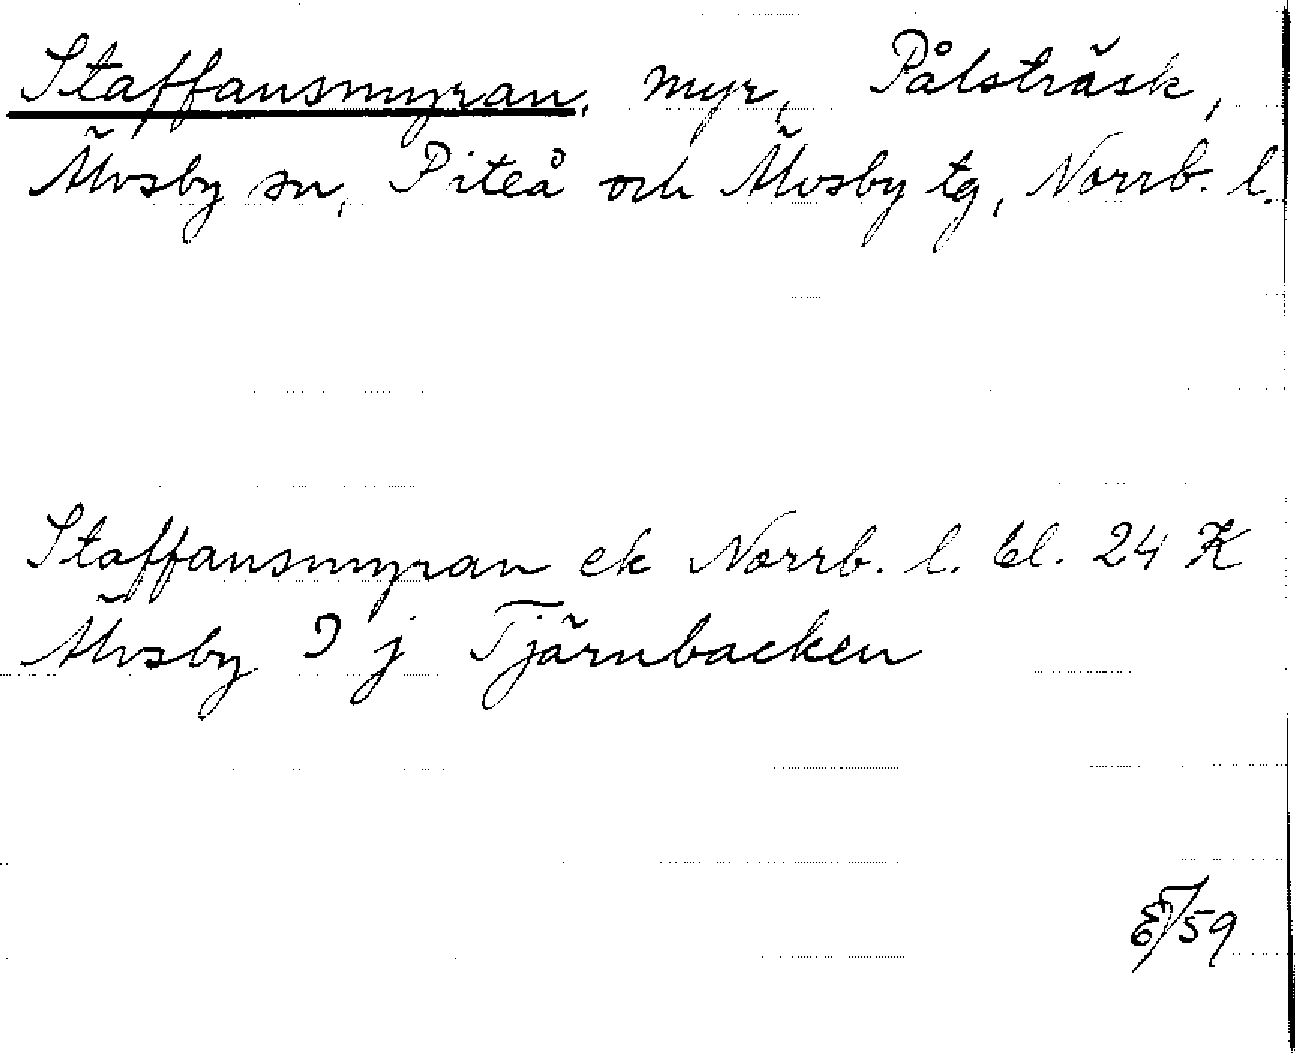 Staffansmyran, myr, Pålsträsk,
Älvsby sn, Piteå och Älvsby tg, Norrb. l.
Staffansmyran ek Norrb. l. bl. 24 K
Älvsby I j Tjärnbacken
/59